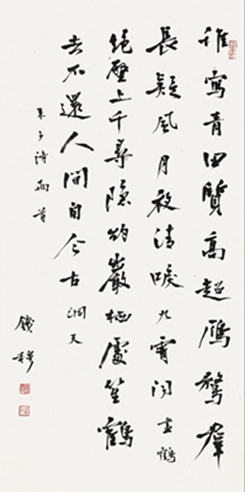 誰寫青田質高超鴈鶩羣
長疑風月夜清唳九霄聞 畫鶴
絕壁上千尋隱約巖栖處笙鶴
去不還人間自今古 洞天
朱子詩兩首
錢穆